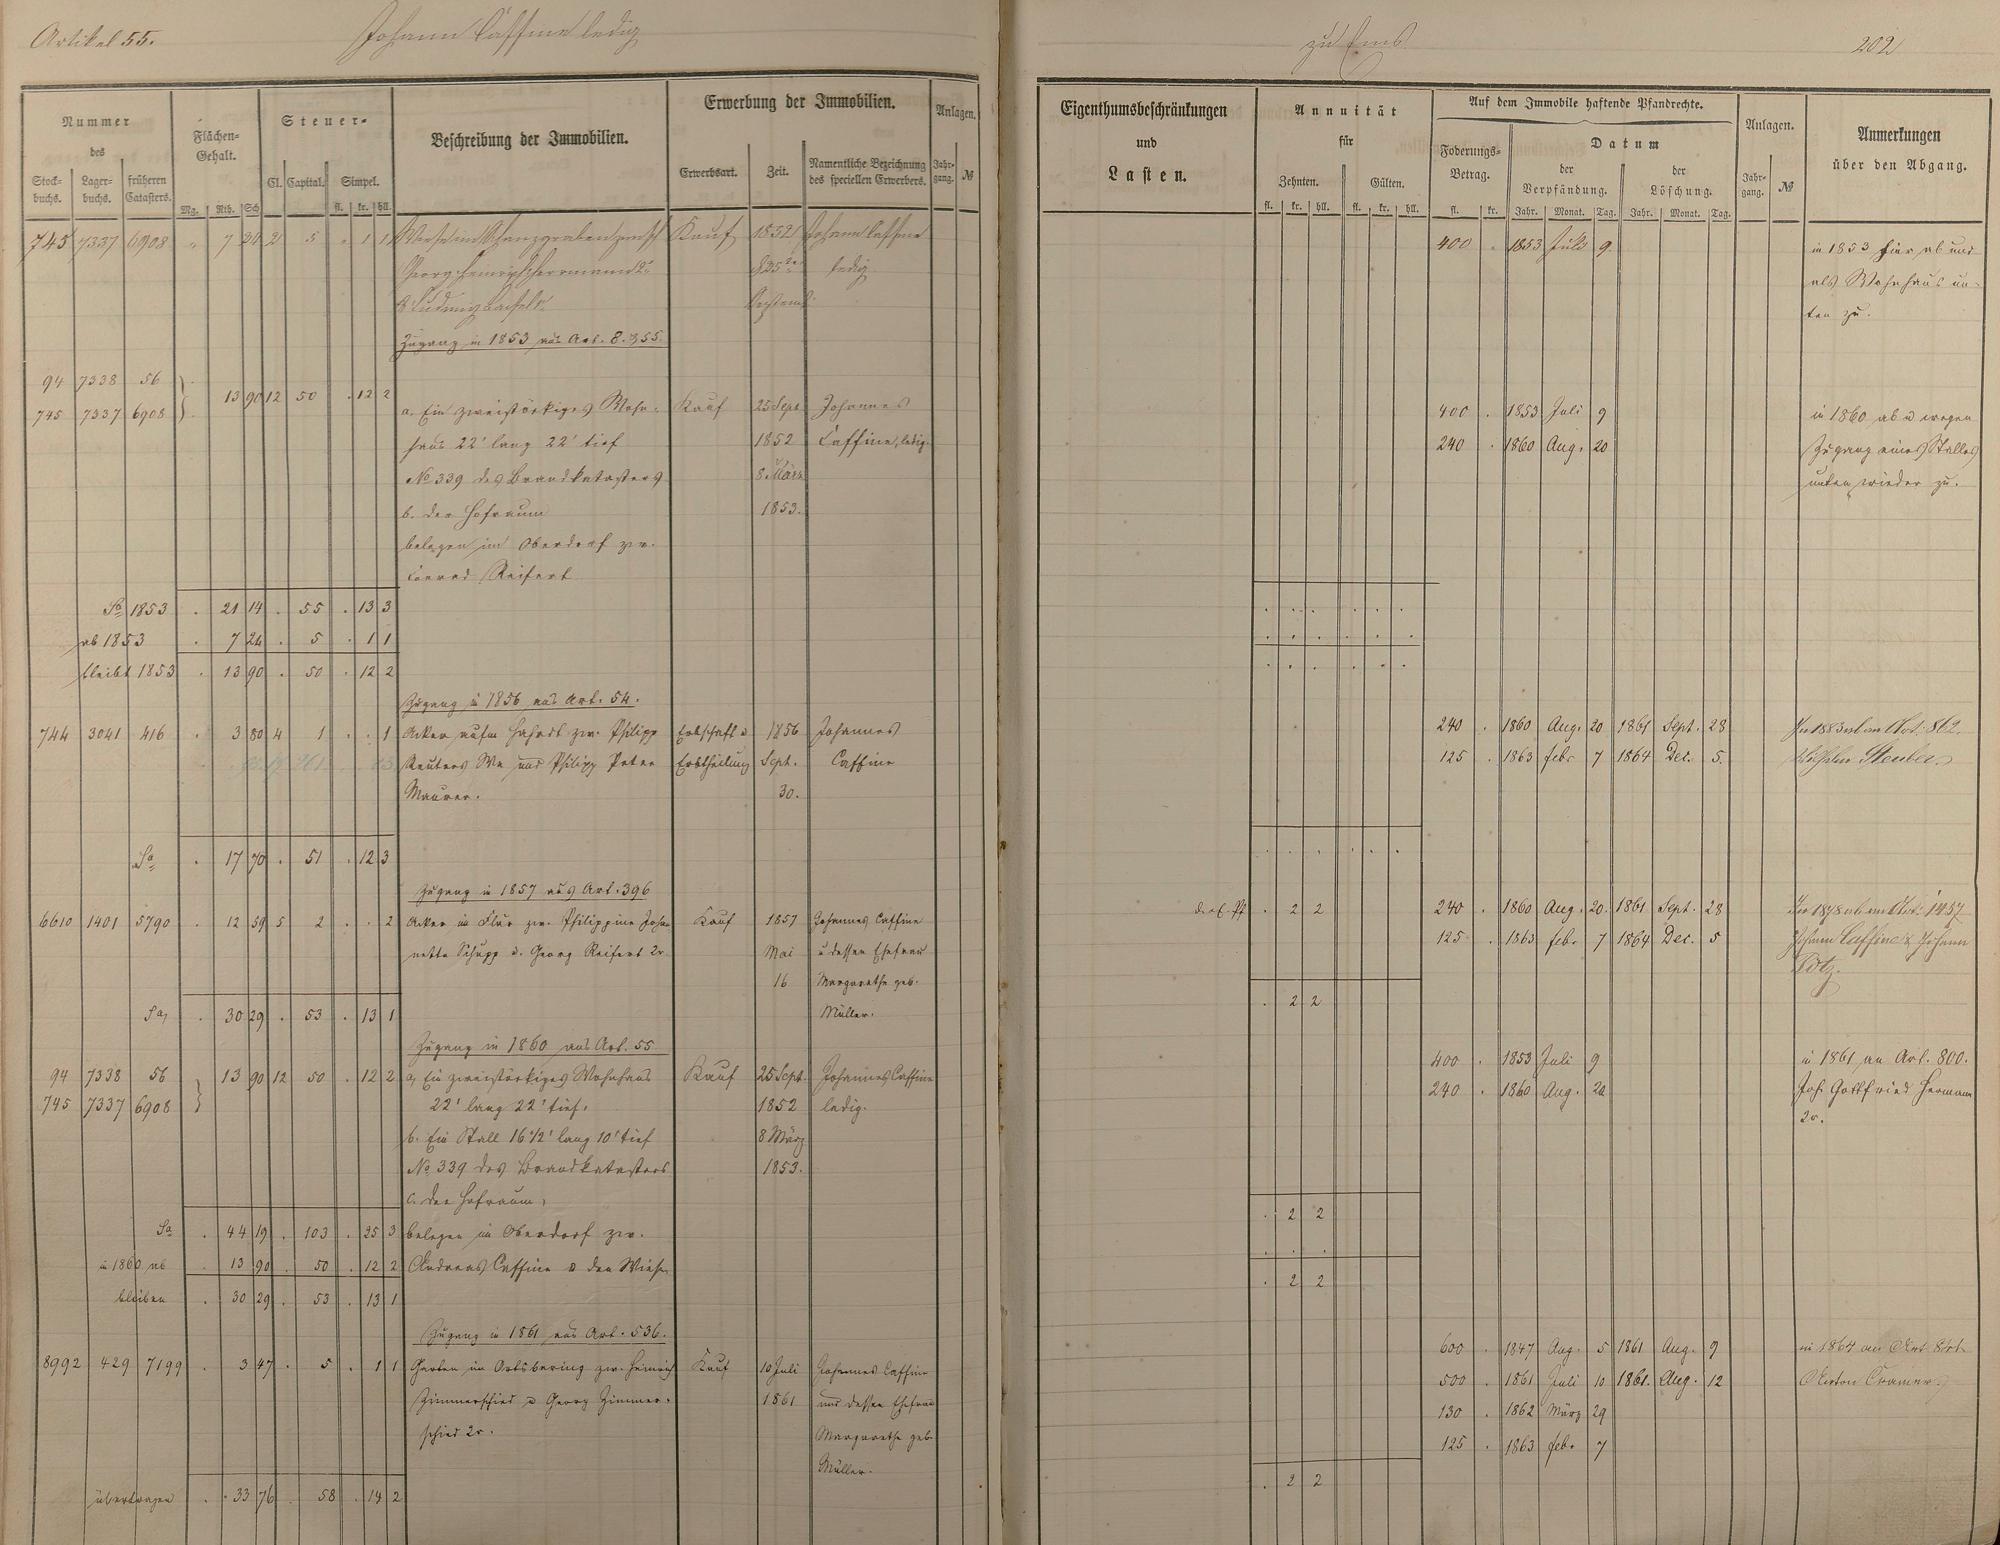 Artikel 55. Johann Caffine ledig zu Ems 202
Nummer des
Stock-buchs. Lager-buchs. früheren Catasters.
Flächen-Gehalt.
Mg. Rth. Sch
Steuer-
Cl. Capital. Simpel.
fl. kr. hll.
Beschreibung der Immobilien.
Erwerbung der Immobilien.
Erwerbsart. Zeit. Namentliche Bezeichnung des speciellen Erwerbers.
Anlagen.
Jahr-gang. №
Eigenthumsbeschränkungen
und
Lasten.
Annuität
für
Zehnten. Gülten.
fl. kr. hll. fl. kr. hll.
Auf dem Immobile haftende Pfandrechte.
Foderungs-Betrag.
fl. kr.
Datum
der Verpfändung. der Löschung.
Jahr. Monat. Tag. Jahr. Monat. Tag.
Anlagen.
Jahr-gang. №
Anmerkungen
über den Abgang.
745 7337 6908 7 24 2 5 . 1 1 Wiese im zwisch Kauf 1852 Johann Caffine 400 . 1853 Juli 9 in 1853 hier ab und
Georg Heinrich Herrmann 2r d 25ten ledig als Wohnhaus un-
& Ludwig Septemb. ten zu.
Zugang in 1853 aus Art. 8. & 55.
94 7338 56
745 7337 6908 . 13 90 12 50 . 12 2 a. Ein zweistöckiges Wohn- Kauf 25 Sept Johannes 400 . 1853 Juli 9 in 1860 ab u wegen
haus 22' lang 22' tief 1852 Caffine, ledig. 240 . 1860 Aug. 20 Zugang eines Stalles
№ 339 des Brandkatasters 8 März unten wieder zu.
b. der Hofraum 1853.
belegen im Oberdorf zw.
Conrad Reifert
Sa 1853 . 21 14 . 55 . 13 3
ab 1853 . 7 24 . 5 . 1 1
bleibt 1853 . 13 90 . 50 . 12 2
Zugang in 1856 aus Art. 54.
744 3041 416 . 3 80 4 1 . . 1 Acker aufm Hahrdt zw. Philipp Erbschaft u 1856 Johannes 240 . 1860 Aug. 20 1861 Sept. 28 In 1883 ab an Art. 802.
Reuters We und Philipp Peter Erbtheilung Sept. Caffine 125 . 1863 febr 7 1864 Dec. 5. Wilhelm Steuber.
Maurer. 30.
Sa . 17 70 . 51 . 12 3
Zugang in 1857 aus Art. 396
6610 1401 5790 . 12 59 5 2 . . 2 Acker im Flur zw. Philippine Joha- Kauf 1857 Johannes Caffine . 2 2 240 . 1860 Aug. 20. 1861 Sept. 28 In 1878 ab an Art. 1457
nette Schupp u. Georg Reifert 2r Mai u dessen Ehefrau 125 . 1863 febr 7 1864 Dec. 5 Johann Caffine & Johann
16 Margarethe geb. . 2 2
Sa, . 30 29 . 53 . 13 1 Müller.
Zugang in 1860 aus Art. 55
94 7338 56 . 13 90 12 50 . 12 2 a, Ein zweistöckiges Wohnhaus Kauf 25 Sept. Johannes Caffine 400 . 1853 Juli 9 in 1861 an Art. 800.
745 7337 6908 22' lang 22' tief. 1852 ledig. 240 . 1860 Aug. 20 Joh. Gottfried Hermann
b. Ein Stall 16 1/2' lang 10' tief 8 März 2r.
№ 339 des Brandkatasters 1853.
c. der Hofraum,
Sa . 44 19 . 103 . 25 3 belegen im Oberdorf zw. . 2 2
in 1860 ab . 13 90 . 50 . 12 2 Andreas Caffine u den Wiesen . . .
bleiben . 30 29 . 53 . 13 1 . 2 2
Zugang in 1861 aus Art. 536.
8992 429 7199 . 3 47 . 5 . 1 1 Garten im Ortsbering zw. Heinrich Kauf 10 Juli Johannes Caffine 600 . 1847 Aug. 5 1861 Aug. 9 in 1864 an Art
Zimmerschied u Georg Zimmer- 1861 und dessen Ehefrau 500 . 1861 Juli 10 1861. Aug. 12 Anton Cramer.
schied 2r. Margarethe geb. 130 . 1862 März 29
Müller. 125 . 1863 febr 7
übertragen . 33 76 . 58 . 14 2 . 2 2